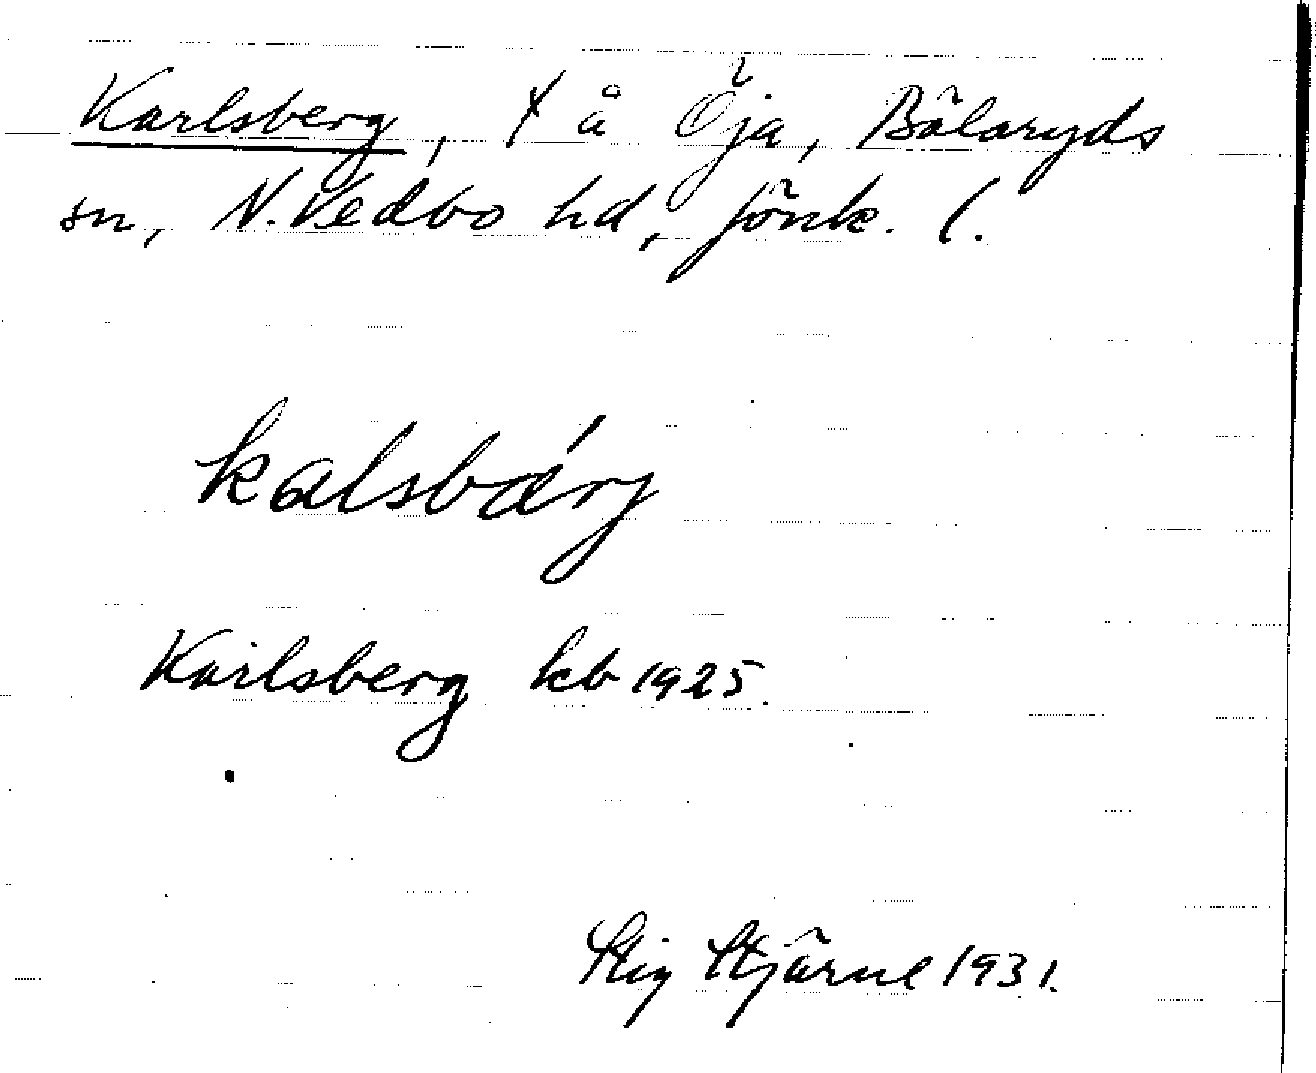 Karlsberg, t å Öja, Bälaryds
sn, N. Vedbo hd, Jönk. l.
kalsbærj
Karlsberg kb 1925.
Stig Stjärne 1931.